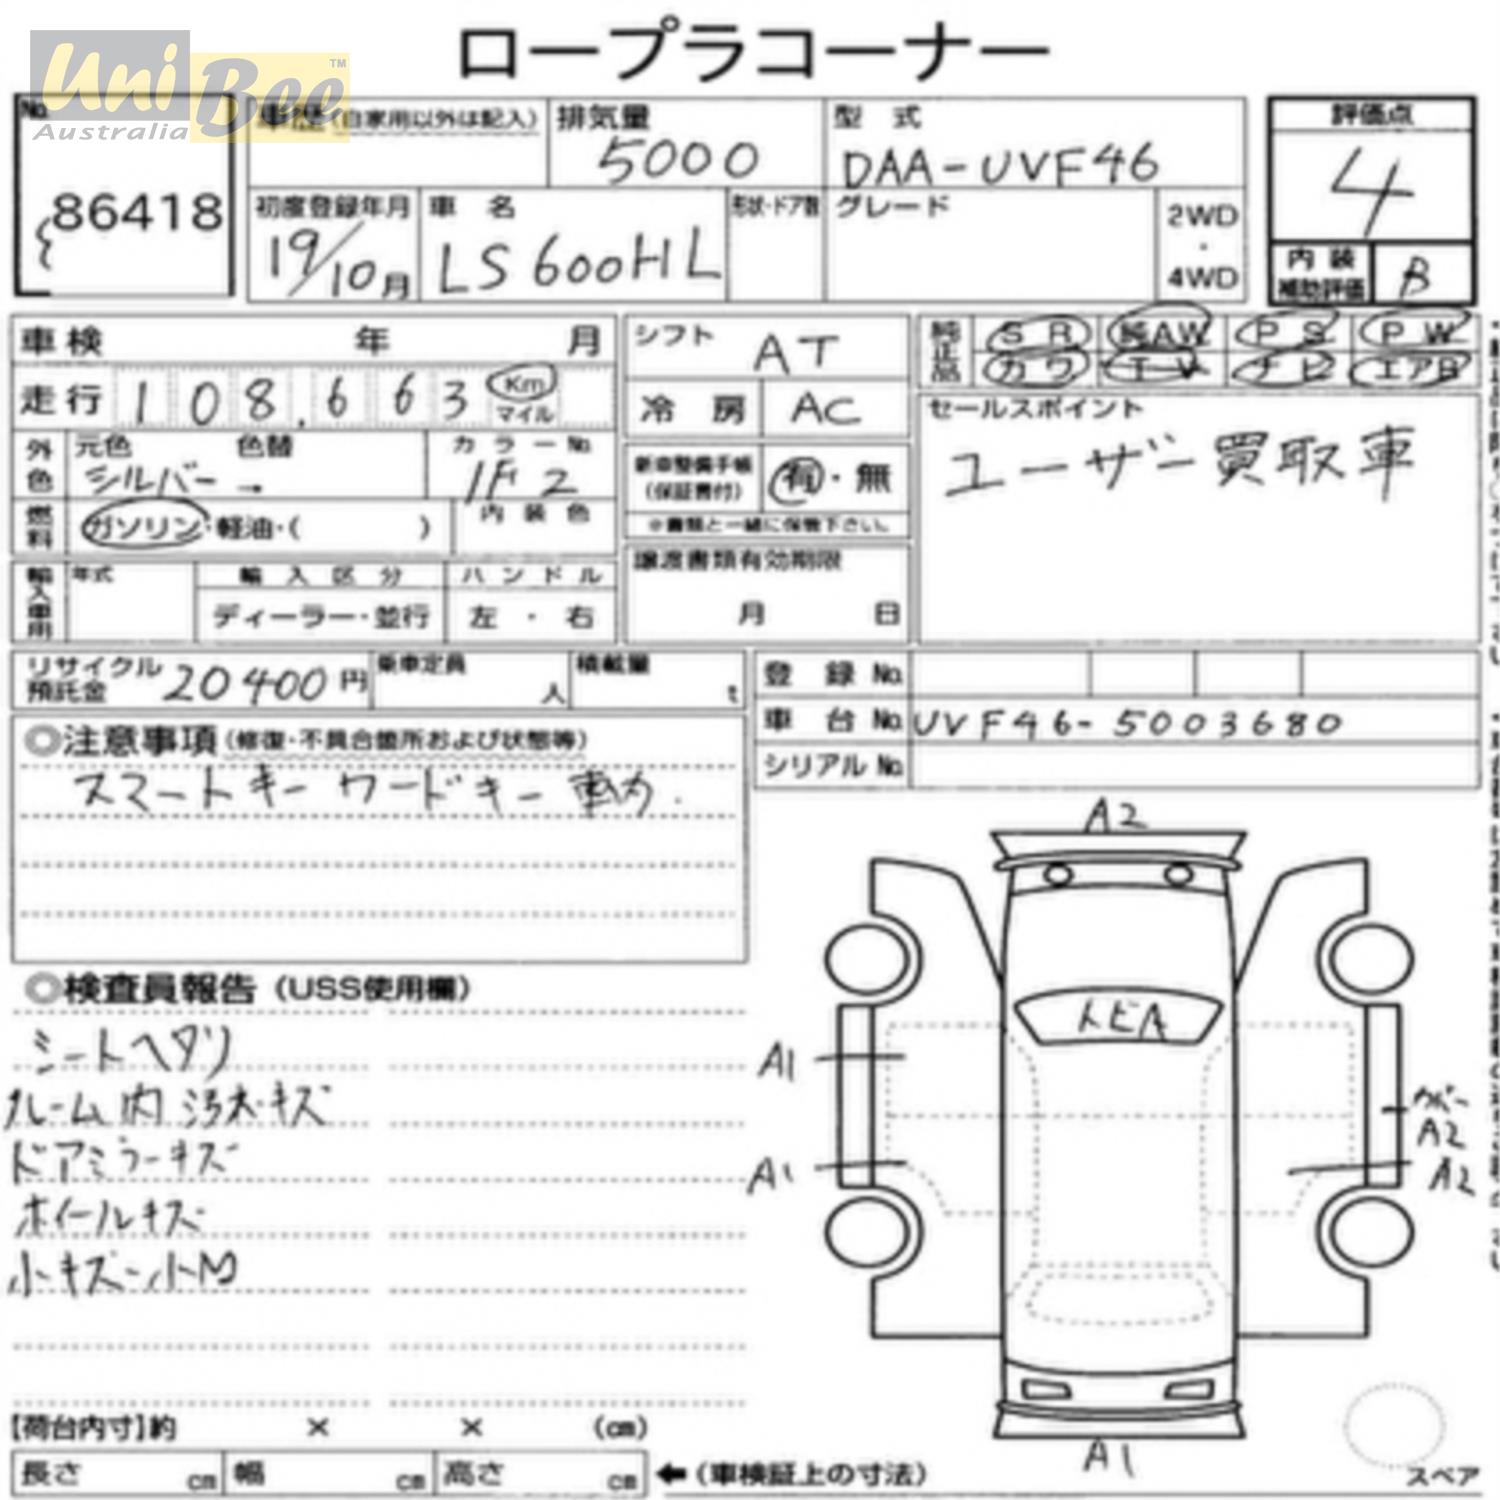 ロープラコーナー
Uni Bee™
Australia
No.
86418
車歴 (自家用以外は記入)
排気量
5000
型 式
DAA-UVF46
評価点
4
初度登録年月
19/10月
車 名
LS600HL
形状・ドア数
グレード
2WD
・
4WD
内装
補助評価
B
車検 年 月
走行 108,663 Km
マイル
シフト
AT
冷 房
AC
純正品
SR 純AW PS PW
カワ TV ナビ エアB
セールスポイント
ユーザー買取車
外色
元色 色替
シルバー→
カラーNo.
1F2
新車整備手帳
(保証書付)
有・無
※書類と一緒に保管下さい。
燃料
ガソリン・軽油・( )
内装色
輸入車用
年式
輸入区分
ディーラー・並行
ハンドル
左 ・ 右
譲渡書類有効期限
月 日
リサイクル
預託金
20400円
乗車定員
人
積載量
t
登 録 No.
車 台 No. UVF46-5003680
シリアル No.
◎注意事項 (修復・不具合箇所および状態等)
スマートキー カードキー
◎検査員報告 (USS使用欄)
シートヘタリ
ルーム内 汚れ・キズ
ドアミラーキズ
ホイールキズ
小キズ・小M
A2
トビA
A1
A1
カバー
A2
A2
A1
スペア
【荷台内寸】約 × × (cm)
長さ cm 幅 cm 高さ cm
←(車検証上の寸法)